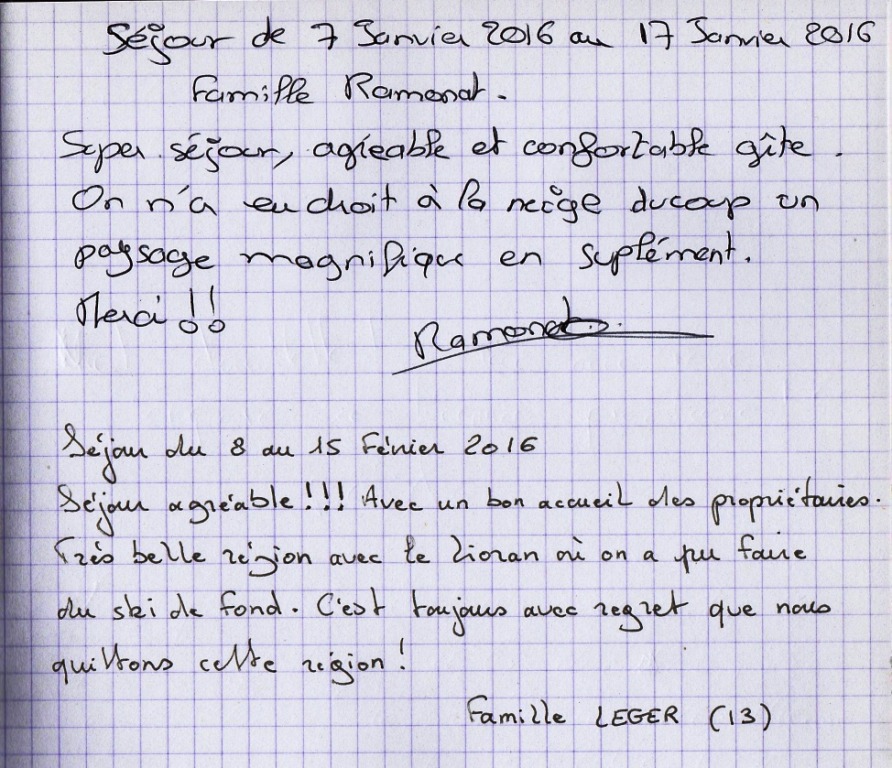 Séjour de 7 Janvier 2016 au 17 Janvier 2016
Famille Ramonat.
Super séjour, agréable et confortable gîte.
On n'a eu droit à la neige ducoup un
paysage magnifique en suplément.
Merci !!
Ramonat
Séjour du 8 au 15 Février 2016
Séjour agréable !!! Avec un bon accueil des propriétaires.
Très belle région avec le Lioran où on a pu faire
du ski de fond. C'est toujours avec regret que nous
quittons cette région !
Famille LEGER (13)